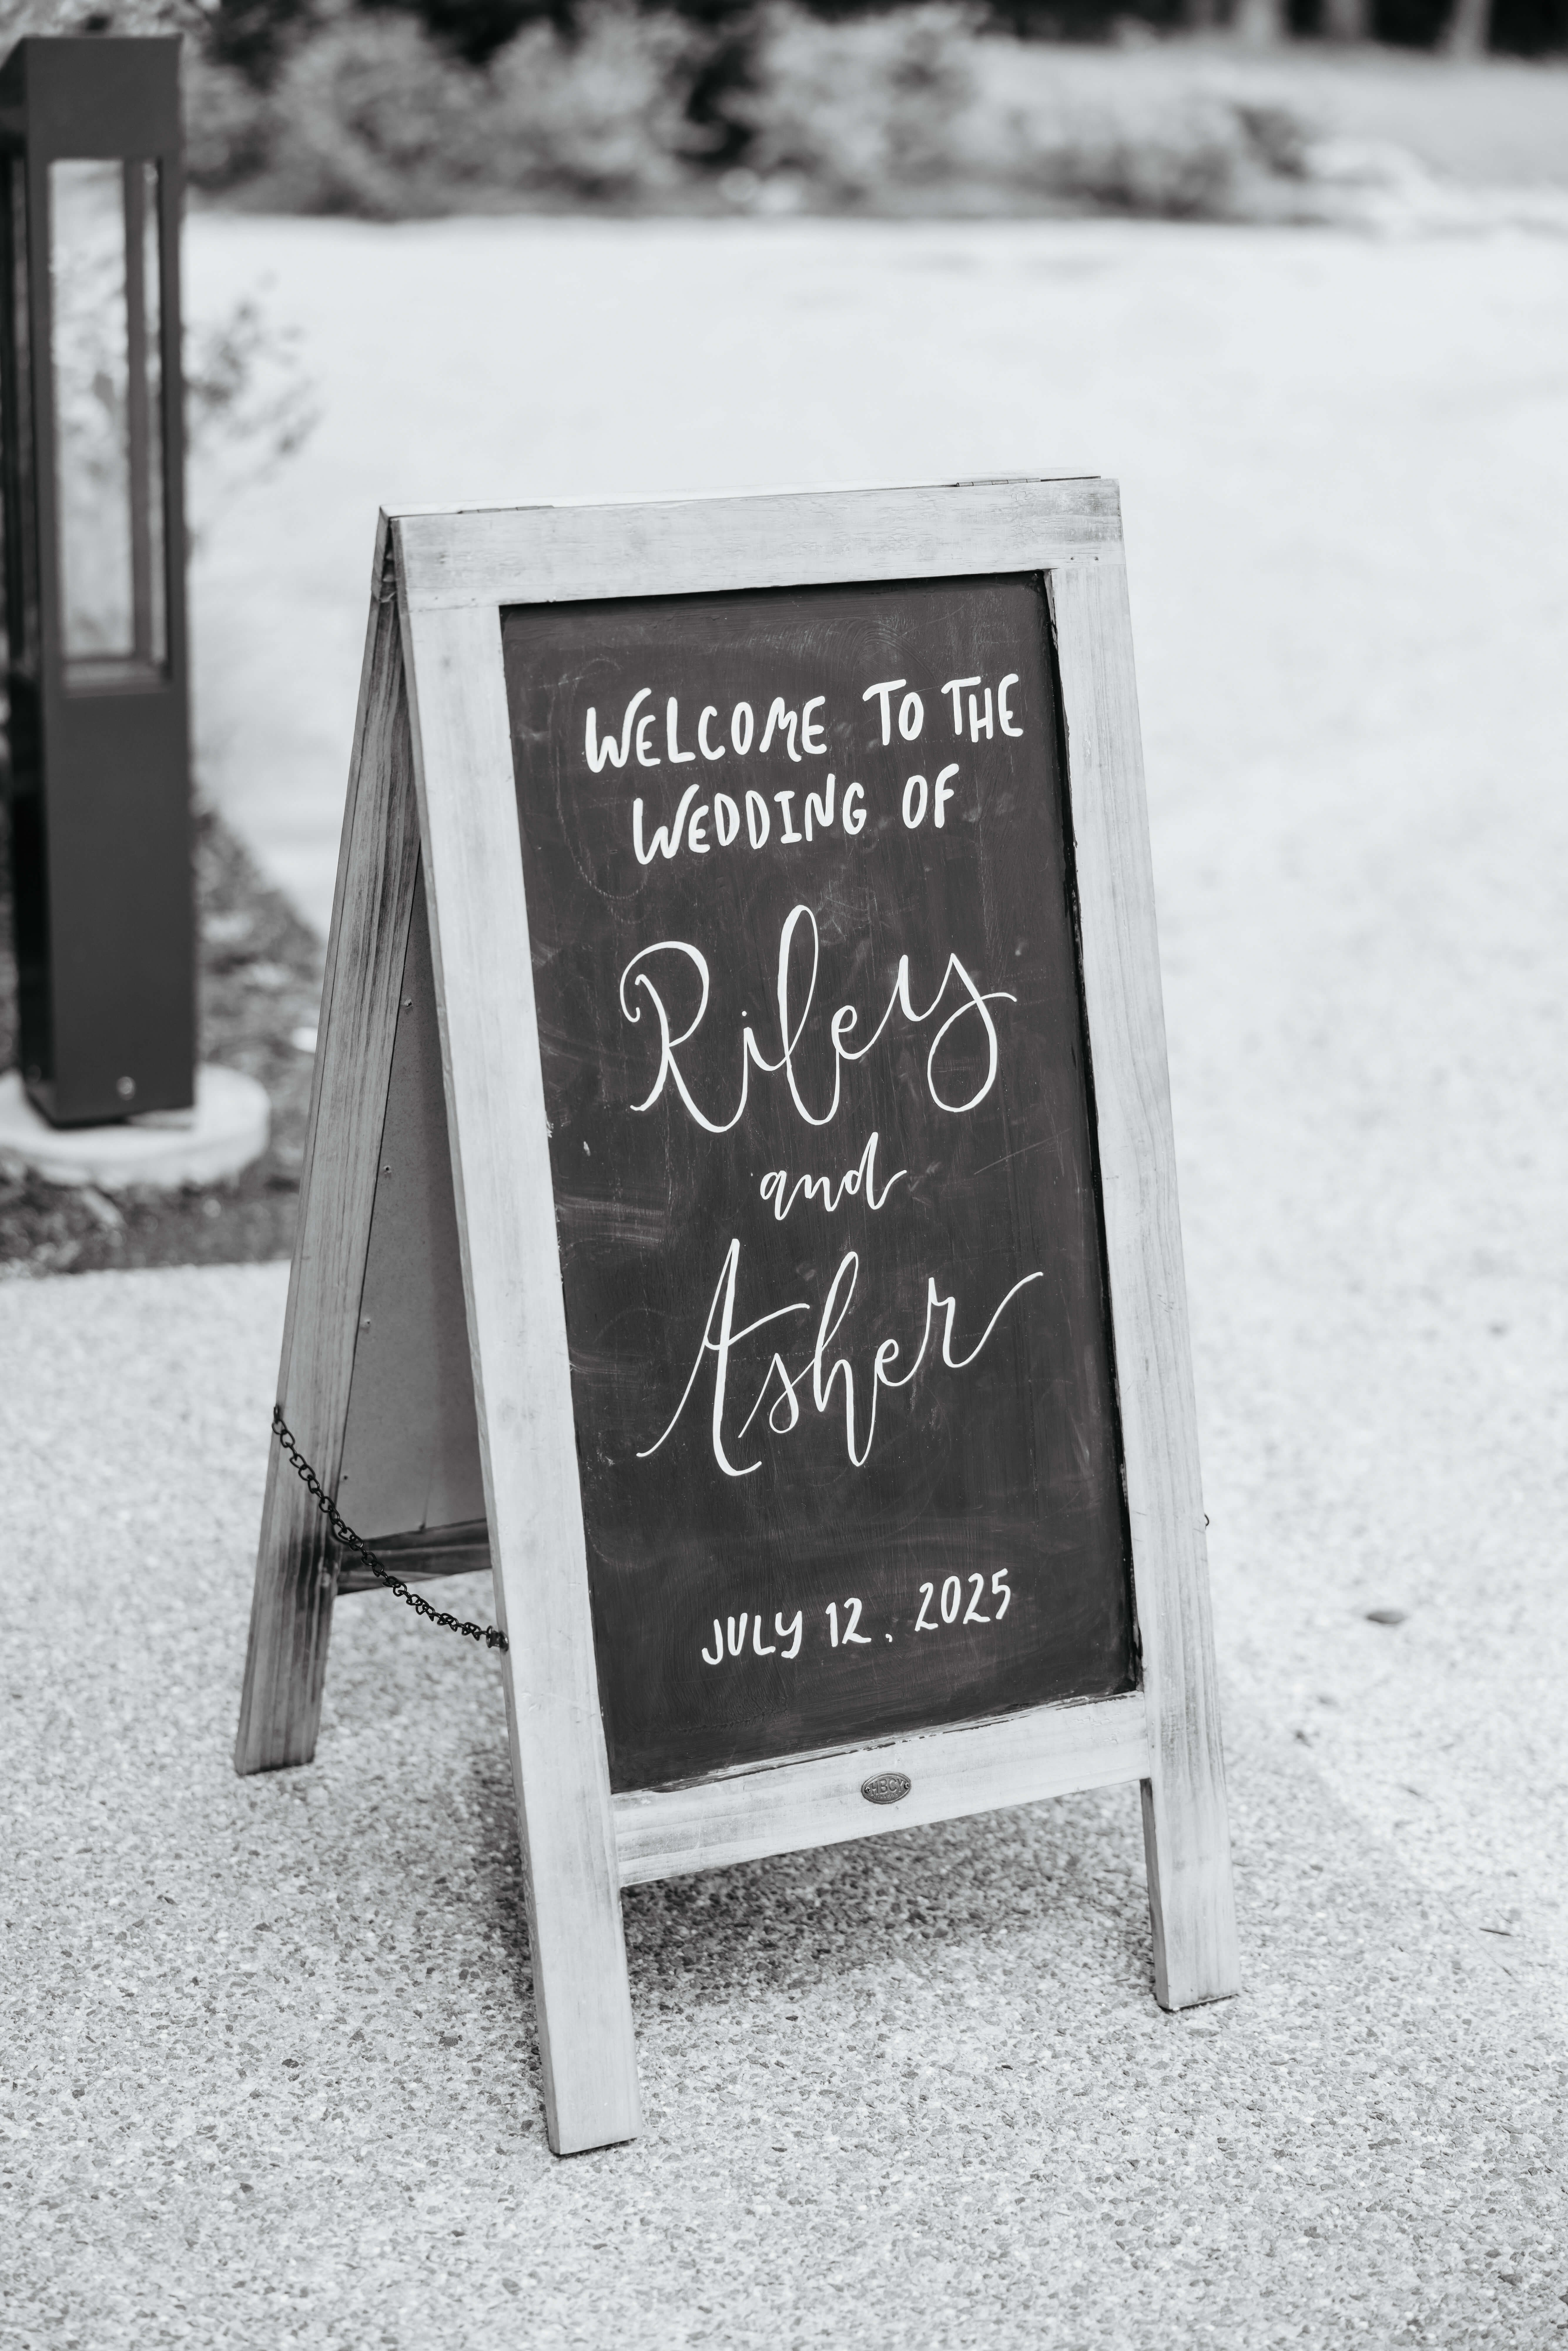 WELCOME TO THE
WEDDING OF
Riley
and
Asher
JULY 12, 2025
HBCY